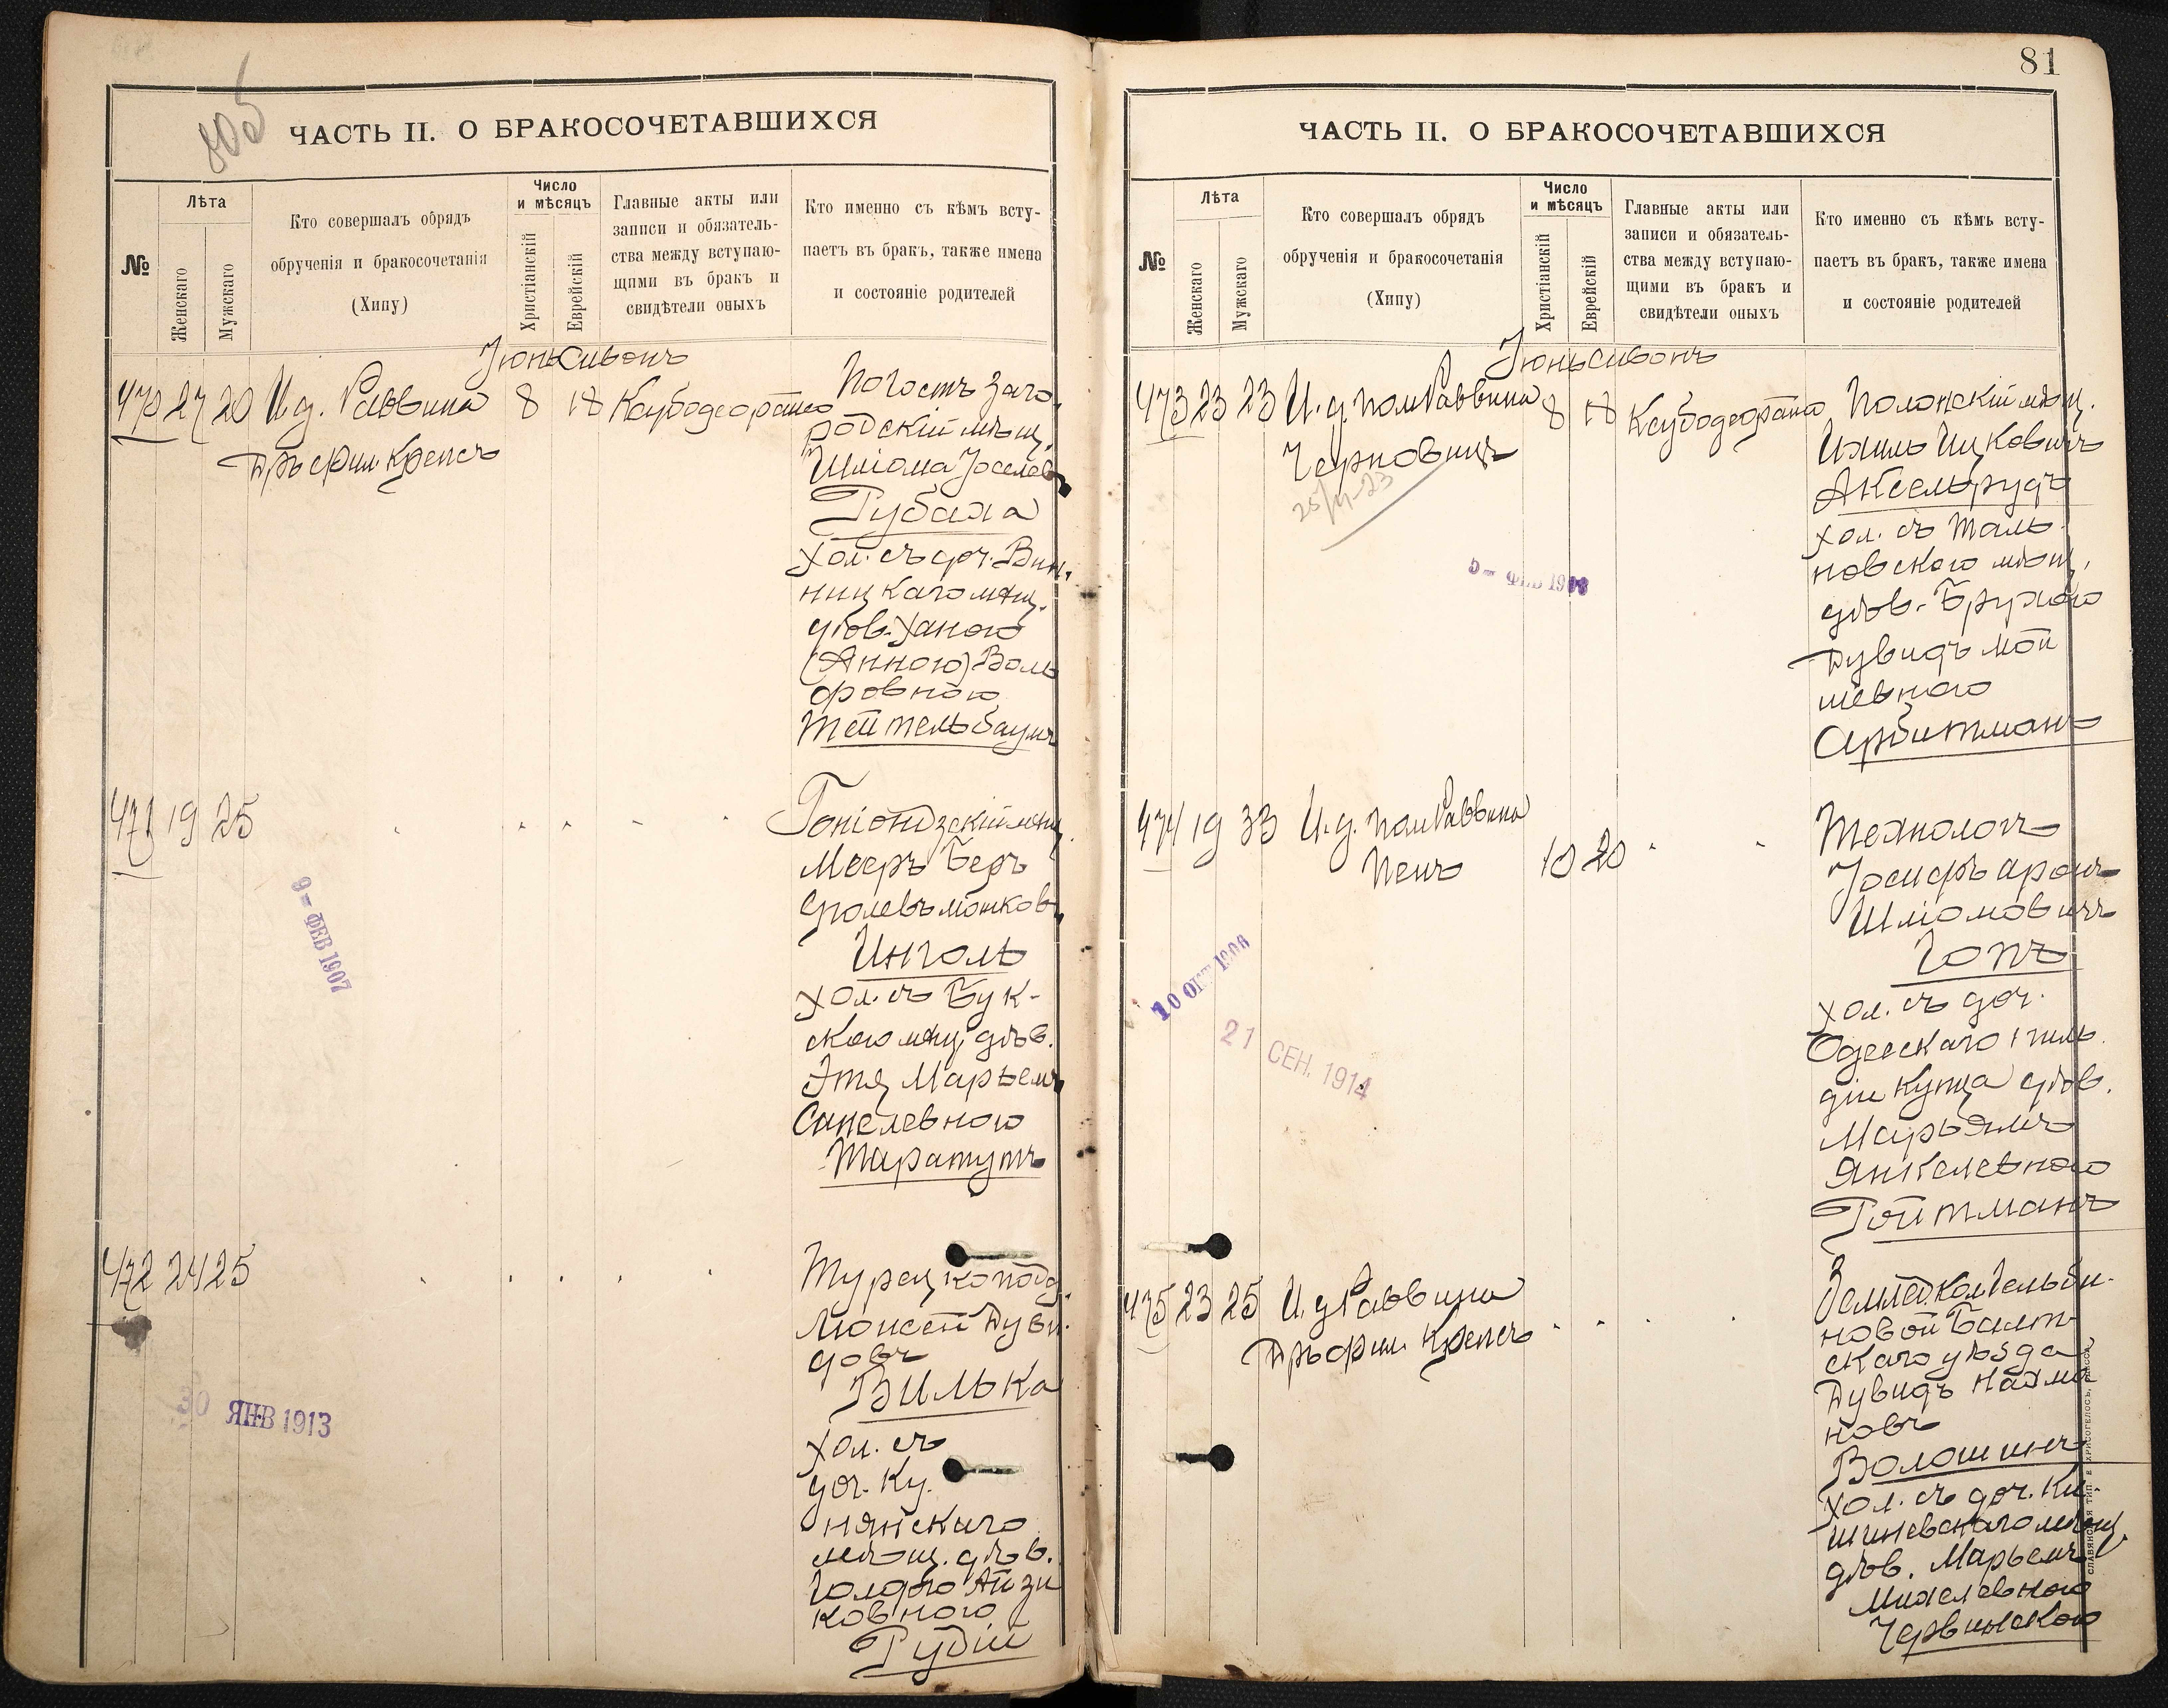 80об
ЧАСТЬ II. О БРАКОСОЧЕТАВШИХСЯ
№
Лѣта
Женскаго
Мужскаго
Кто совершалъ обрядъ
обрученія и бракосочетанія
(Хипу)
Число
и мѣсяцъ
Христіанскій
Еврейскій
Главные акты или
записи и обязатель-
ства между вступаю-
щими въ бракъ и
свидѣтели оныхъ
Кто именно съ кѣмъ всту-
паетъ въ бракъ, также имена
и состояніе родителей
Іюнь Сивонъ
470 27 20 И. д. Раввина 8 18
Погостъ Заго
родскій мѣщ.
Шліома Іоселев
Рубаха
хол. съ доч. Вин-
ницкаго мѣщ.
дѣв. Ханою
(Анною) Воль
фовною
Тейтельбаумъ
471 19 25
Гоніондзскій мѣщ.
Мееръ Беръ
Сролевъ Мошков
Инголь
хол. съ Бук-
скою мѣщ. дѣв.
Этя Марьемъ
Санелевною
Таратутъ
9 - ФЕВ 1907
472 24 25
Турец. подд.
Мойсей Дуви
довъ
Вилька
хол. съ
доч. Ку-
нянскаго
мѣщ. дѣв.
Голдою Айзи
ковною
Рудій
30 ЯНВ 1913
81
ЧАСТЬ II. О БРАКОСОЧЕТАВШИХСЯ
№
Лѣта
Женскаго
Мужскаго
Кто совершалъ обрядъ
обрученія и бракосочетанія
(Хипу)
Число
и мѣсяцъ
Христіанскій
Еврейскій
Главные акты или
записи и обязатель-
ства между вступаю-
щими въ бракъ и
свидѣтели оныхъ
Кто именно съ кѣмъ всту-
паетъ въ бракъ, также имена
и состояніе родителей
Іюнь Сивонъ
473 23 23 И. д. пом Раввина 8 18
Черновицъ
Полонскій мѣщ.
Ихиль Ицковичъ
Аксельрудъ
хол. съ Таль
новского мѣщ.
дѣв. Брухою
Дувидъ Мой
шевною
Арбитманъ
5 - ФЕВ
474 19 33 И. д. пом Раввина
Пенъ 10 20
Технологъ
Іосифъ Аронъ
Шліомовичъ
Гопъ
хол. съ доч.
Одесскаго 1 гиль
діи купца дѣв.
Марьямъ
Янкелевною
Ройтманъ
21 СЕН. 1914
475 23 25 И. д Раввина
Земле Кол
новой Балт-
скаго уѣзда
Дувидъ Нахма
новъ
Волошинъ
хол. съ доч. Ки-
шиневскаго мѣщ.
дѣв. Марьемъ
Михелевною
Червинскою